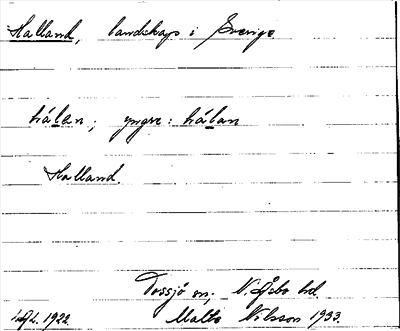 Halland, landskap i Sverige
hálan; yngre: hálan
Halland.
Tossjö sn, N. Åsbo hd.
1922. Malte Nilsson 1933.